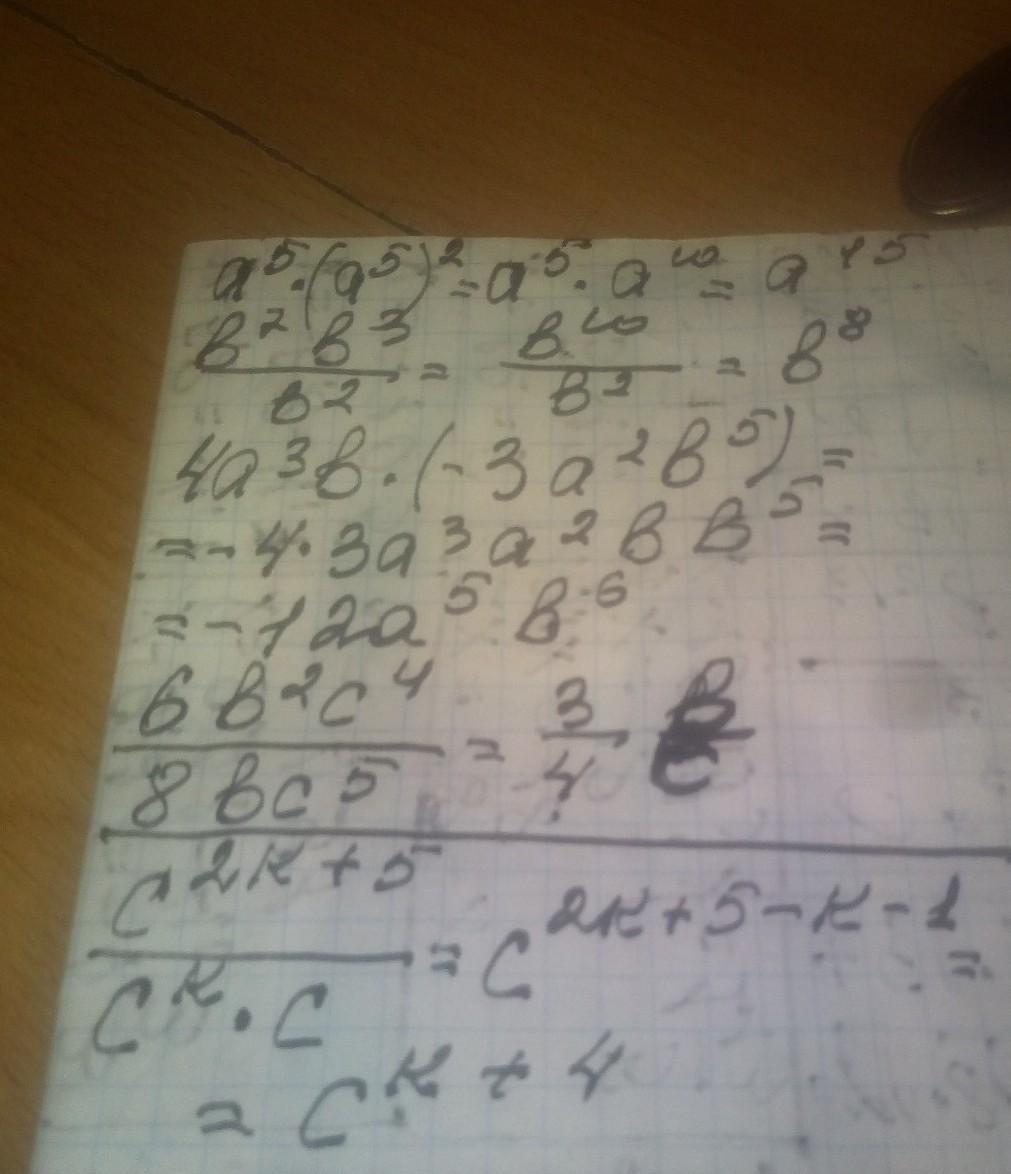 a⁵·(a⁵)²=a⁵·a¹⁰=a¹⁵
в² в³/в² = в¹⁰/в² = в⁸
4a³в·(-3a²в⁵)=
=-4·3a³a²вв⁵=
=-12a⁵в⁶
6в²c⁴/8вc⁵ = 3/4 в/c
c²ᴷ⁺⁵/cᴷ·c = c²ᴷ⁺⁵⁻ᴷ⁻¹=
=cᴷ⁺⁴